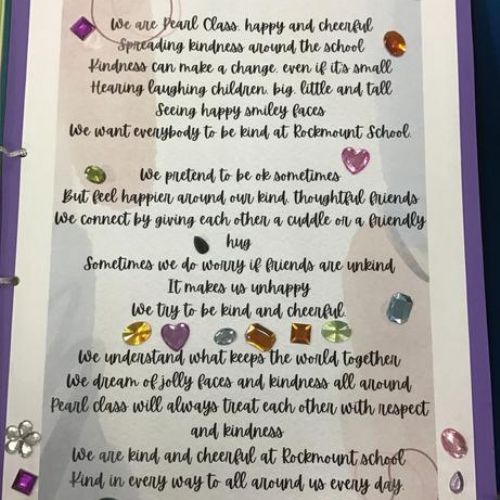 We are Pearl Class, happy and cheerful
Spreading kindness around the school
Kindness can make a change, even if it's small
Hearing laughing children, big, little and tall
Seeing happy smiley faces
We want everybody to be kind at Rockmount School.
We pretend to be ok sometimes
But feel happier around our kind, thoughtful friends
We connect by giving each other a cuddle or a friendly
hug
Sometimes we do worry if friends are unkind
It makes us unhappy
We try to be kind and cheerful.
We understand what keeps the world together
We dream of jolly faces and kindness all around
Pearl class will always treat each other with respect
and kindness
We are kind and cheerful at Rockmount school
Kind in every way to all around us every day.